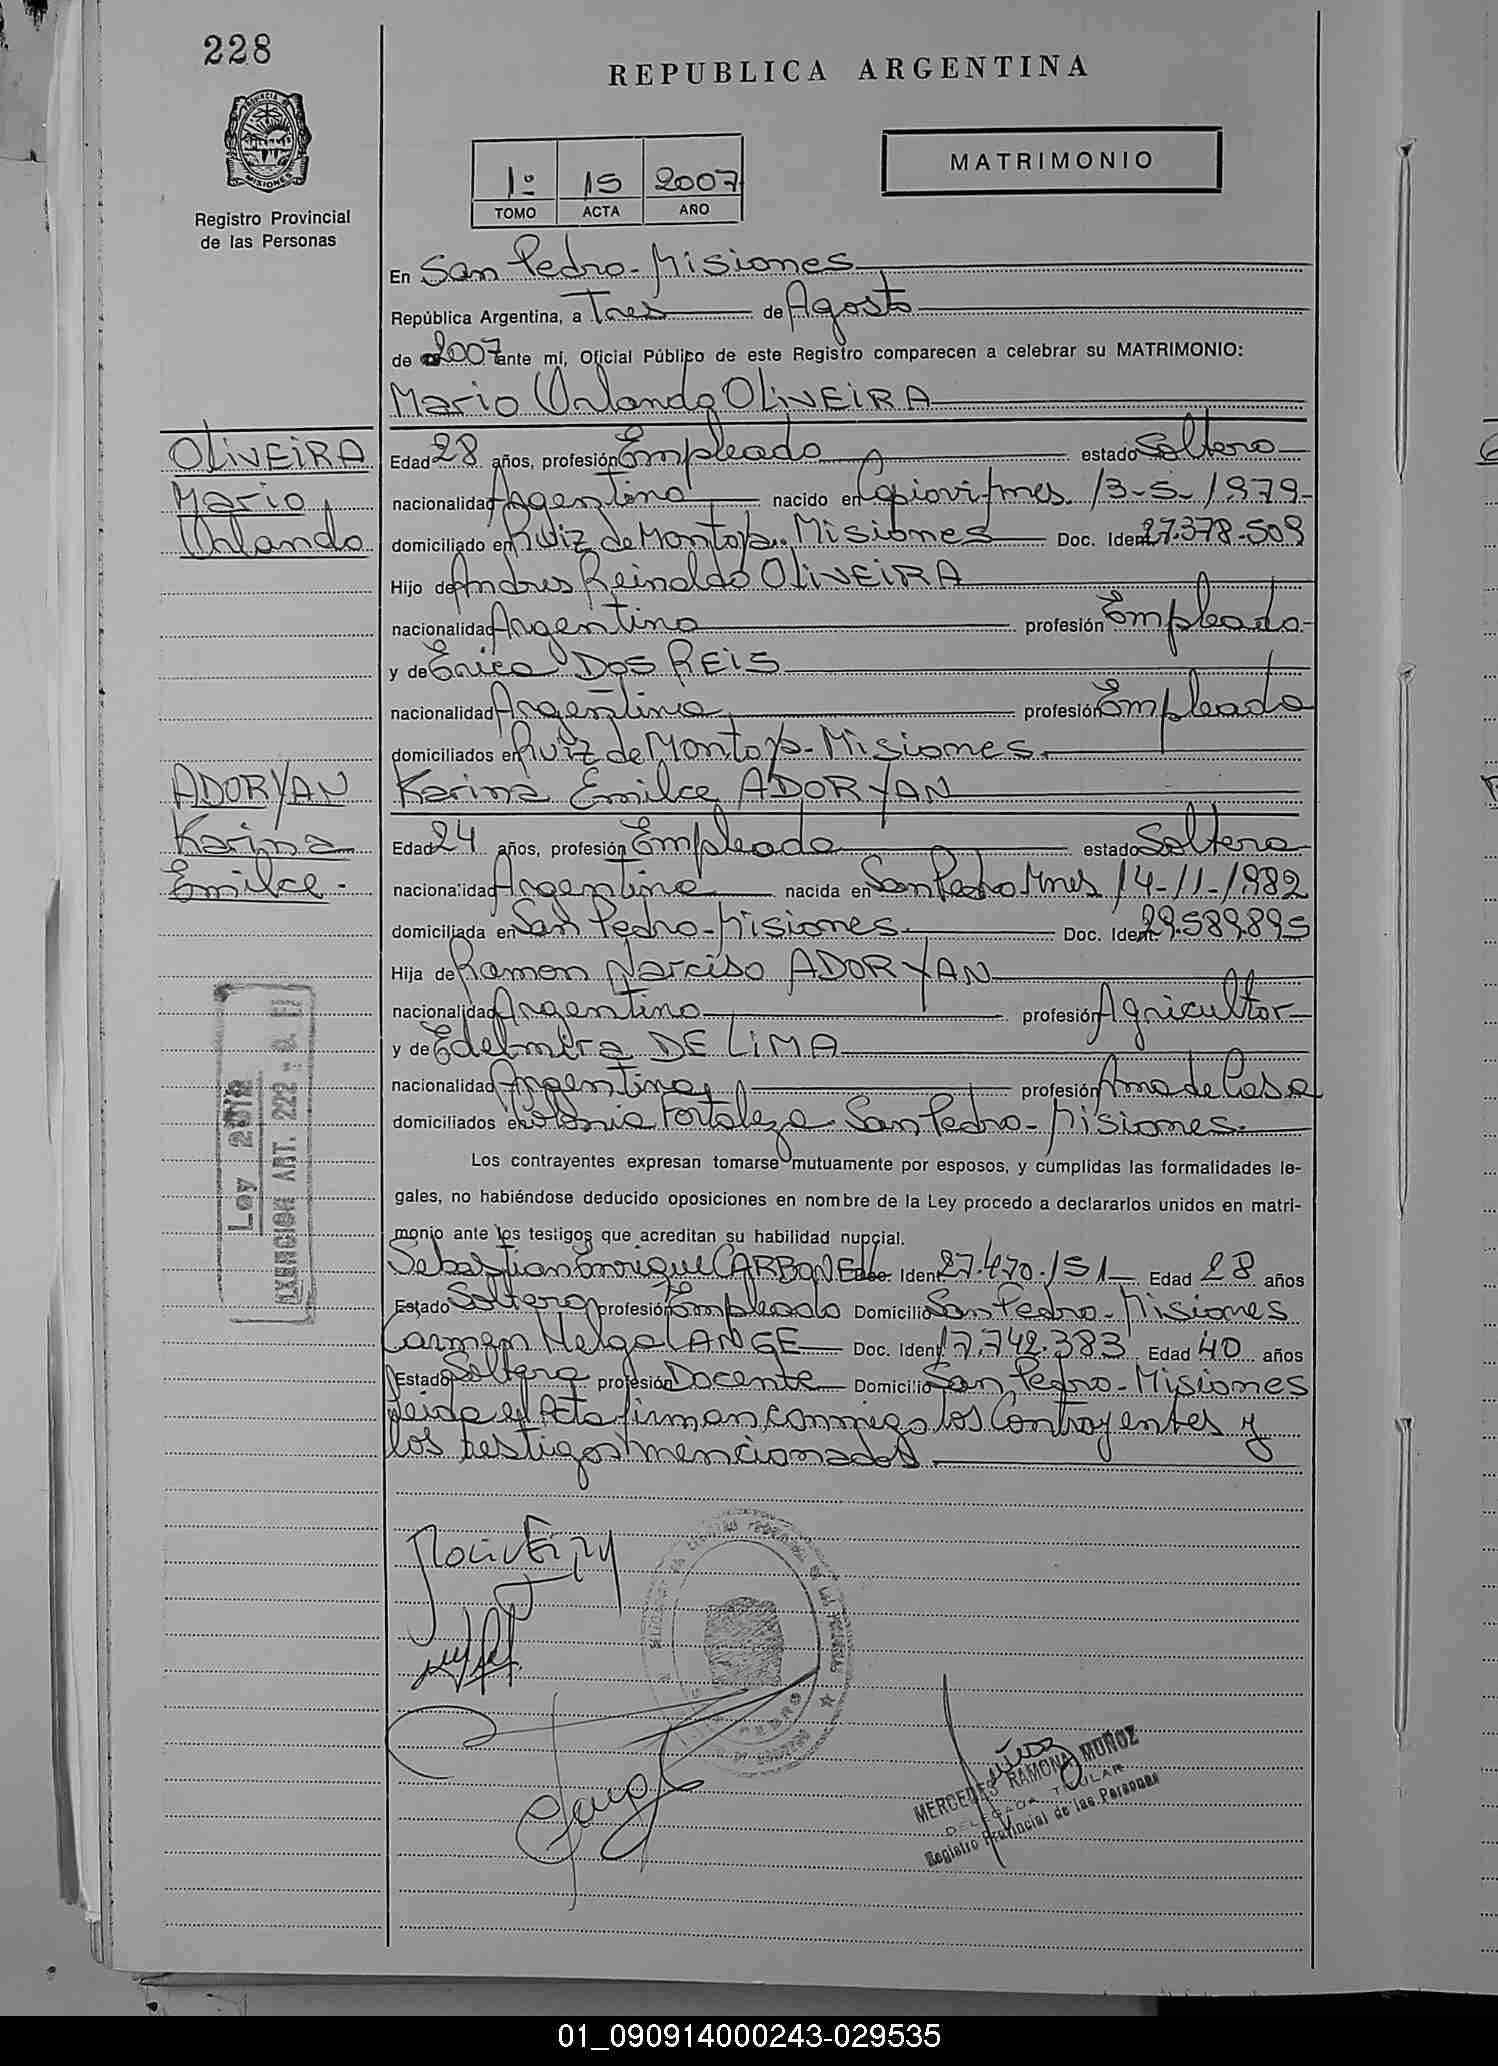 228
REPUBLICA ARGENTINA
PROVINCIA DE MISIONES
Registro Provincial
de las Personas
1º 15 2007
TOMO ACTA AÑO
MATRIMONIO
En San Pedro - Misiones
República Argentina, a Tres de Agosto
de 2007 ante mí, Oficial Público de este Registro comparecen a celebrar su MATRIMONIO:
Mario Orlando OLIVEIRA
OLIVEIRA
Mario
Orlando
Edad 28 años, profesión Empleado estado Soltero
nacionalidad Argentina nacido en Capiovi Mnes. 13-5-1979
domiciliado en Ruiz de Montoya - Misiones Doc. Ident. 27.378.509
Hijo de Andres Reinaldo OLIVEIRA
nacionalidad Argentina profesión Empleado
y de Erica DOS REIS
nacionalidad Argentina profesión Empleada
domiciliados en Ruiz de Montoya - Misiones.
Karina Emilce ADORYAN
ADORYAN
Karina
Emilce.-
Edad 24 años, profesión Empleada estado Soltera
nacionalidad Argentina nacida en San Pedro Mnes 14-11-1982
domiciliada en San Pedro - Misiones. Doc. Ident. 29.589.895
Hija de Ramon Narciso ADORYAN
nacionalidad Argentino profesión Agricultor
y de Edelmira DE LIMA
nacionalidad Argentina profesión Ama de Casa
domiciliados en Colonia Fortaleza San Pedro - Misiones.
Ley 2970
EXENCION ART. 222
Los contrayentes expresan tomarse mutuamente por esposos, y cumplidas las formalidades le-
gales, no habiéndose deducido oposiciones en nombre de la Ley procedo a declararlos unidos en matri-
monio ante los testigos que acreditan su habilidad nupcial.
Sebastian Enrique CARBONE Doc. Ident. 27.470.151 Edad 28 años
Estado Soltero profesión Empleado Domicilio San Pedro - Misiones
Carmen Helga LANGE Doc. Ident. 17.742.383 Edad 40 años
Estado Soltera profesión Docente Domicilio San Pedro - Misiones
Leida el Acta firman conmigo los Contrayentes y
los testigos mencionados.
MERCEDES RAMONA MUÑOZ
DELEGADA TITULAR
Registro Provincial de las Personas
01_090914000243-029535